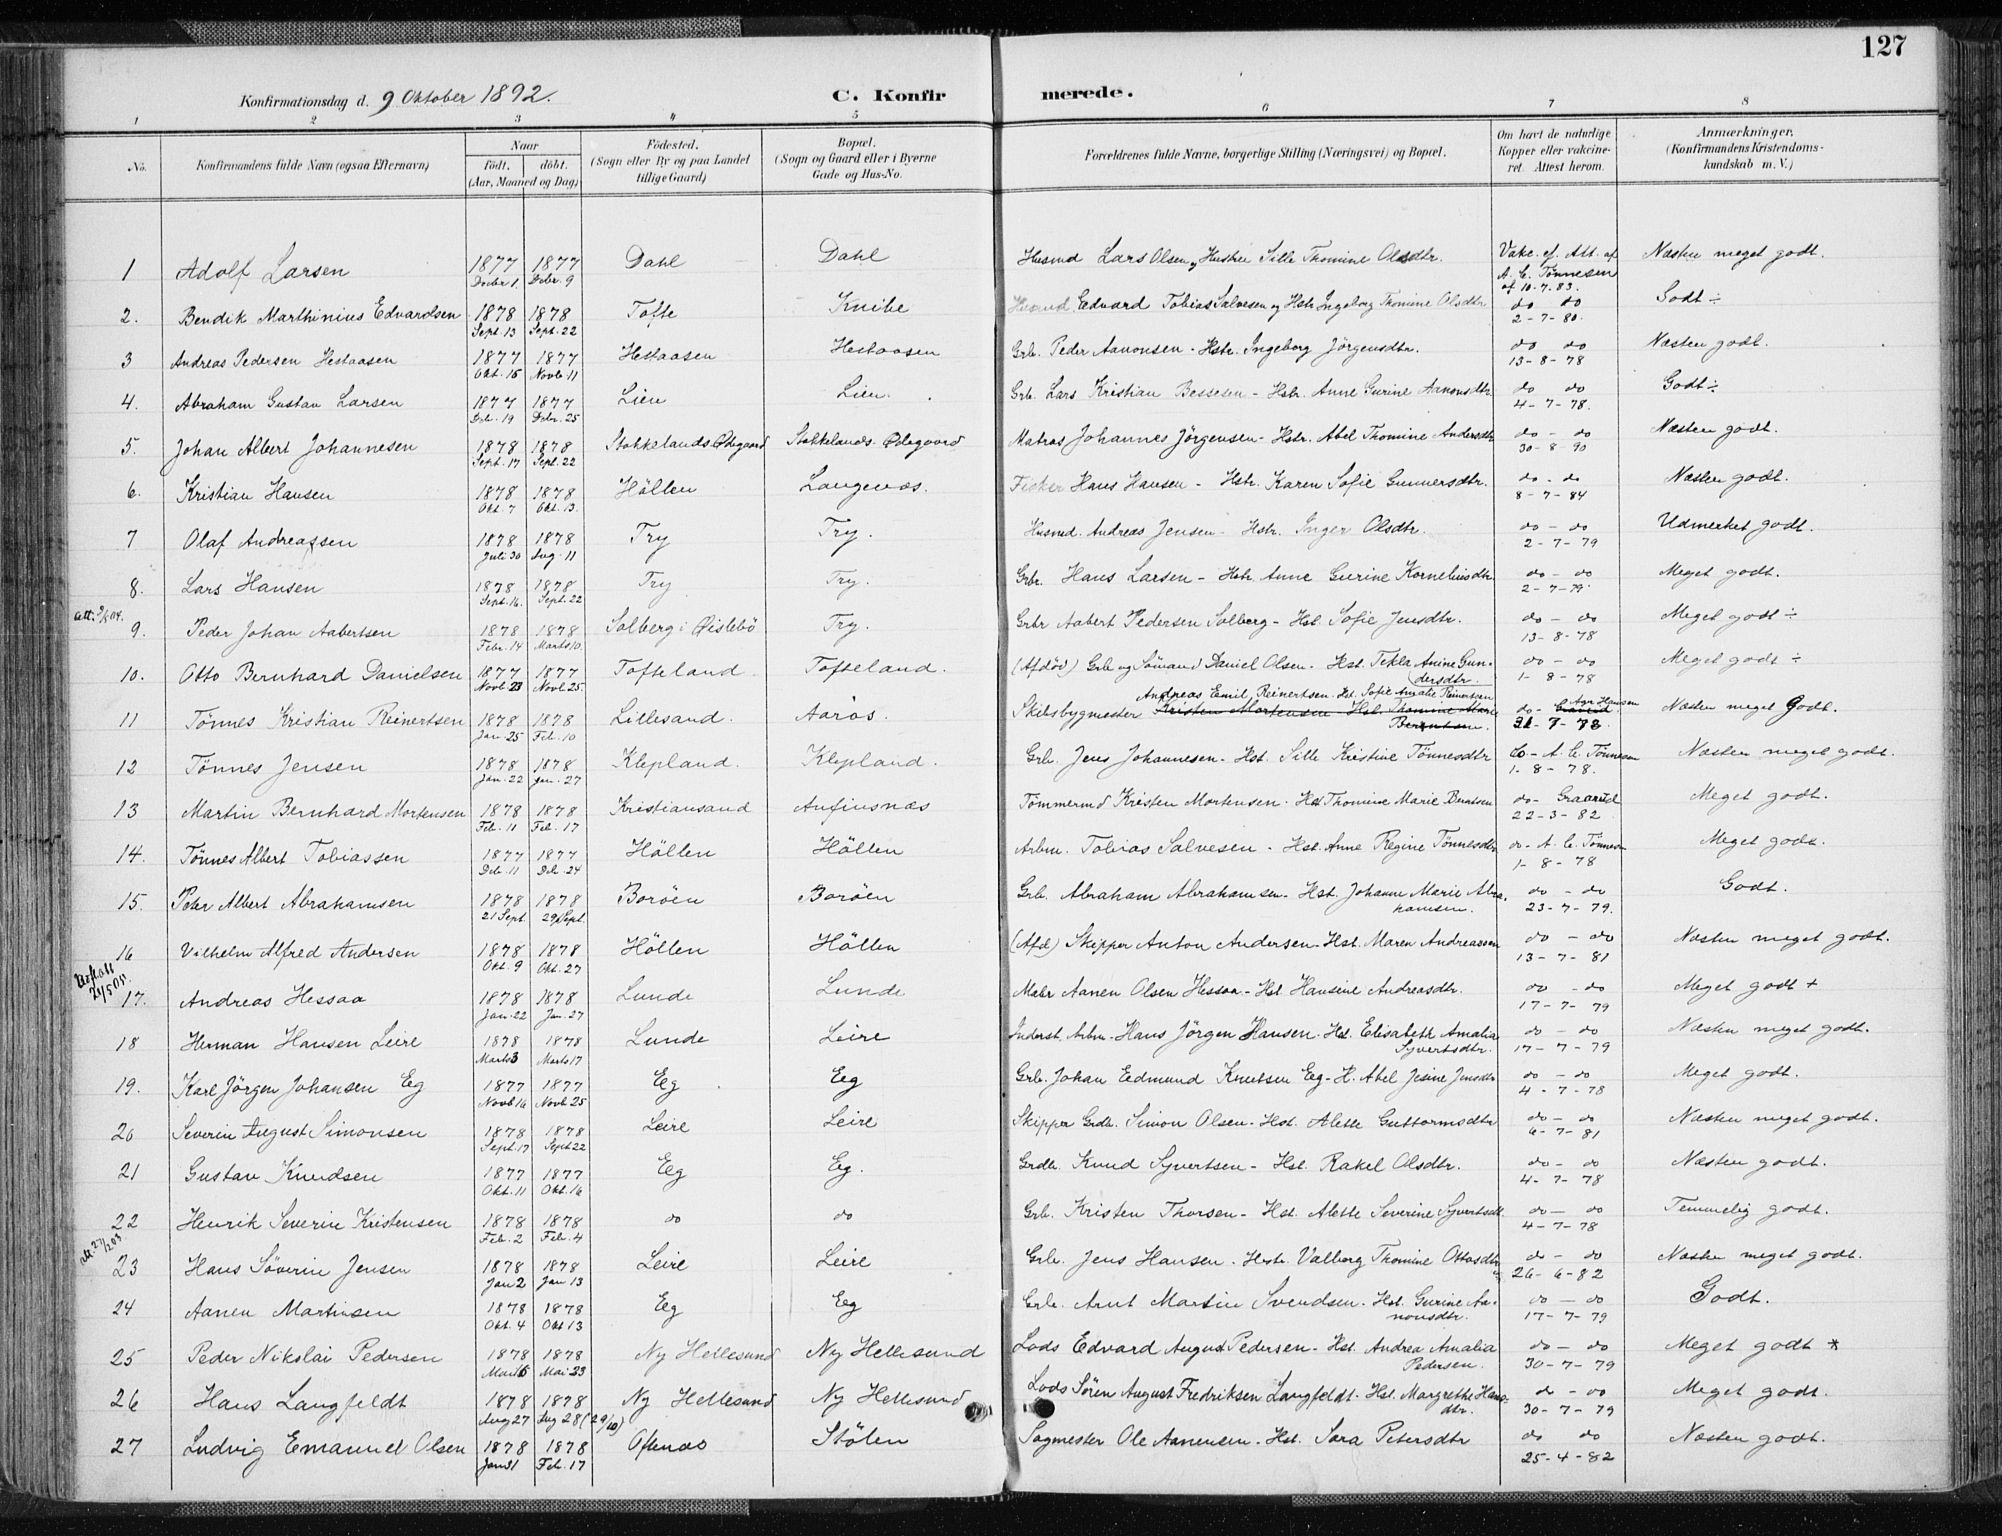 127
Konfirmationsdag d. 9 Oktober 1892. C. Konfirmerede.
1 2 3 4 5 6 7 8
No. Konfirmandens fulde Navn (ogsaa Efternavn) Naar født. døbt. (Aar, Maaned og Dag) Födested. (Sogn eller By og paa Landet tillige Gaard) Bopæl. (Sogn og Gaard eller i Byerne Gade og Hus-No. Forældrenes fulde Navne, borgerlige Stilling (Næringsvei) og Bopæl. Om havt de naturlige Kopper eller vakcineret. Attest herom. Anmærkninger. (Konfirmandens Kristendomskundskab m. V.)
1 Adolf Larsen 1877 Decbr 1. 1877 Debr. 9 Dahl Dahl Husmd Lars Olsen og Hustru Sille Thomine Olsdtr. Vakc. ef. Att. af A. C. Tønnesen af 10-7-83. Næsten meget godt.
2. Bendik Marthinius Edvardsen 1878 Sept. 13 1878 Sept. 22 Tofte Knibe Husmd Edvard Tobias Salvesen og Hstr Ingeborg Thomine Olsdtr do do 2-7-80. Godt ÷
3 Andreas Pedersen Hestaasen 1877 Okt. 15 1877 Novb. 11 Hestaasen Hestaasen Grb. Peder Aanonsen - Hstr. Ingeborg Jörgensdtr. do do 13-8-78 Næsten godt.
4. Abraham Gustav Larsen 1877 Deb. 19 1877 Debr. 25 Lien Lien. Grb. Lars Kristian Bessesen - Hstr. Anne Gurine Aanonsdtr. do do 4-7-78. Godt ÷
5. Johan Albert Johannesen 1878 Sept. 17 1878 Sept. 22 Stokkelands Ødegaard Stokkelands Ødegaard Matros Johannes Jörgensen - Hstr. Abel Thomine Andersdtr do - do 30-8-90 Næsten godt.
6. Kristian Hansen 1878 Okt. 7 1878 Okt. 13. Höllen Langenæs. Fisker Hans Hansen - Hstr. Karen Sofie Gunnersdtr. do - do 8-7-84 Næsten godt.
7 Olaf Andreassen 1878 Juli 30 1878 Aug. 11 Try Try. Husmd. Andreas Jensen - Hstr. Inger Olsdtr. do - do 2-7-79 Udmerket godt.
8. Lars Hansen 1878 Sept. 16. 1878 Sept. 22 Try Try. Grbr. Hans Larsen - Hstr. Anne Gurine Korneliusdtr. do - do 2-7-79. Meget godt.
9. Peder Johan Aabertsen 1878 Febr. 14 1878 Marts 10. Solberg i Øislebö Try. Grbr Aabert Pedersen Solberg - Hst. Sofie Jensdtr. do - do 13-8-78 Meget godt ÷
10. Otto Bernhard Danielsen 1877 Novb. 23 1877 Novb. 25 Tofteland Tofteland. (Afdöd) Grb og Sömand Daniel Olsen - Hst. Tekla Anine Gundersdtr. do - do 1-8-78 Meget godt ÷
11 Tönnes Kristian Reinertsen 1878 Jan. 25 1878 Feb. 10 Lillesand. Aarös. Skibsbygmester Andreas Emil Reinertsen - Hst. Sofie Amalie Reinertsen Kristen Mortensen Hst. Thomine Marie Berntsen. do - Hansen 31-7-78. Næsten meget Godt.
12 Tönnes Jensen 1878 Jan. 22 1878 Jan. 27 Klepland. Klepland. Grb. Jens Johannesen - Hst. Sille Kristine Tönnesdtr do - A. C. Tönnesen 1-8-78. Næsten meget godt.
13 Martin Bernhard Mortensen 1878 Feb. 11 1878 Feb. 17 Kristiansand Anfinsnæs Tömmermd Kristen Mortensen - Hst Thomine Marie Berntsen do - Graarud 22-3-82 Meget godt.
14. Tönnes Albert Tobiassen 1877 Deb. 11 1877 Deb. 24 Höllen Höllen Arbm. Tobias Salvesen - Hst. Anne Regine Tönnesdtr do - A. C. Tönnesen 1-8-78 Meget godt.
15. Peder Albert Abrahamsen 1878 21 Sept. 1878 29 Sept. Boröen Boröen Grb. Abraham Abrahamsen - Hst. Johanne Marie Abrahamsen. do - do 23-7-79. Godt.
16 Vilhelm Alfred Andersen 1878 Okt. 9 1878 Okt. 27 Höllen Höllen (Afd) Skipper Anton Andersen - Hst. Maren Andreassen do - do 13-7-81 Næsten meget godt.
17. Andreas Hessaa 1878 Jan. 22 1878 Jan. 27 Lunde Lunde Aanen Olsen Hessaa - Hst. Hansine Andreasdtr. do - do 17-7-79 Meget godt +
18 Herman Hansen Leire 1878 Marts 3 1878 Marts 17 Lunde Leire Inderst, Arbm. Hans Jörgen Hansen - Hst. Elisabeth Amalia Syvertsdtr. do - do 17-7-79 Næsten meget godt.
19. Karl Jörgen Johansen Eg 1877 Novb 16 1877 Novb. 25 Eeg Eeg Grb. Johan Eedmund Knutsen Eeg - H. Abel Jesine Jensdtr do - do 4-7-78 Meget godt.
20 Severin August Simonsen 1878 Sept. 17 1878 Sept 22 Leire Leire Skipper Grdb. Simon Olsen - Hst. Alette Guttormsdtr do - do 6-7-81 Næsten meget godt.
21 Gustav Knudsen 1877 Okt. 11 1877 Okt. 16 Eeg Eeg. Grdb. Knud Syvertsen - Hst. Rakel Olsdtr. do - do 4-7-78 Næsten godt.
22 Henrik Severin Kristensen 1878 Feb. 2 1878 Feb. 4 do do Grb. Kristen Thorsen - Hst. Alette Severine Syvertsdt. do - do 4-7-78 Temmelig godt.
23 Hans Söverin Jensen 1878 Jan 2 1878 Jan 13 Leire Leire Grb. Jens Hansen - Hstr. Valborg Thomine Ottosdtr do - do 26-6-82 Næsten meget godt.
24 Aanen Martinsen 1878 Okt. 4 1878 Okt 13 Eeg Eeg Grb. Arnt Martin Svendsen - Hst. Gurine Aanonsdtr. do - do 17-7-79 Godt.
25 Peder Nikolai Pedersen 1878 1878 Mai 23 Ny Hellesund Ny Hellesund Lods Edvard August Pedersen - Hst. Andrea Amalia Pedersen. do - do 30-7-79 Meget godt
26 Hans Langfeldt 1878 Aug 27 1878 Aug 28 (29/10) Ny Hellesund Ny Hellesund Lods Sören August Fredriksen Langfeldt - Hst. Margrethe Hansdtr. do - do 30-7-79 Meget godt.
27 Ludvig Emanuel Olsen 1878 Jan 31 1878 Feb. 17 Oftenæs Stölen Sagmester Ole Aanensen - Hst. Sara Petersdtr do do 25-4-82 Næsten godt.